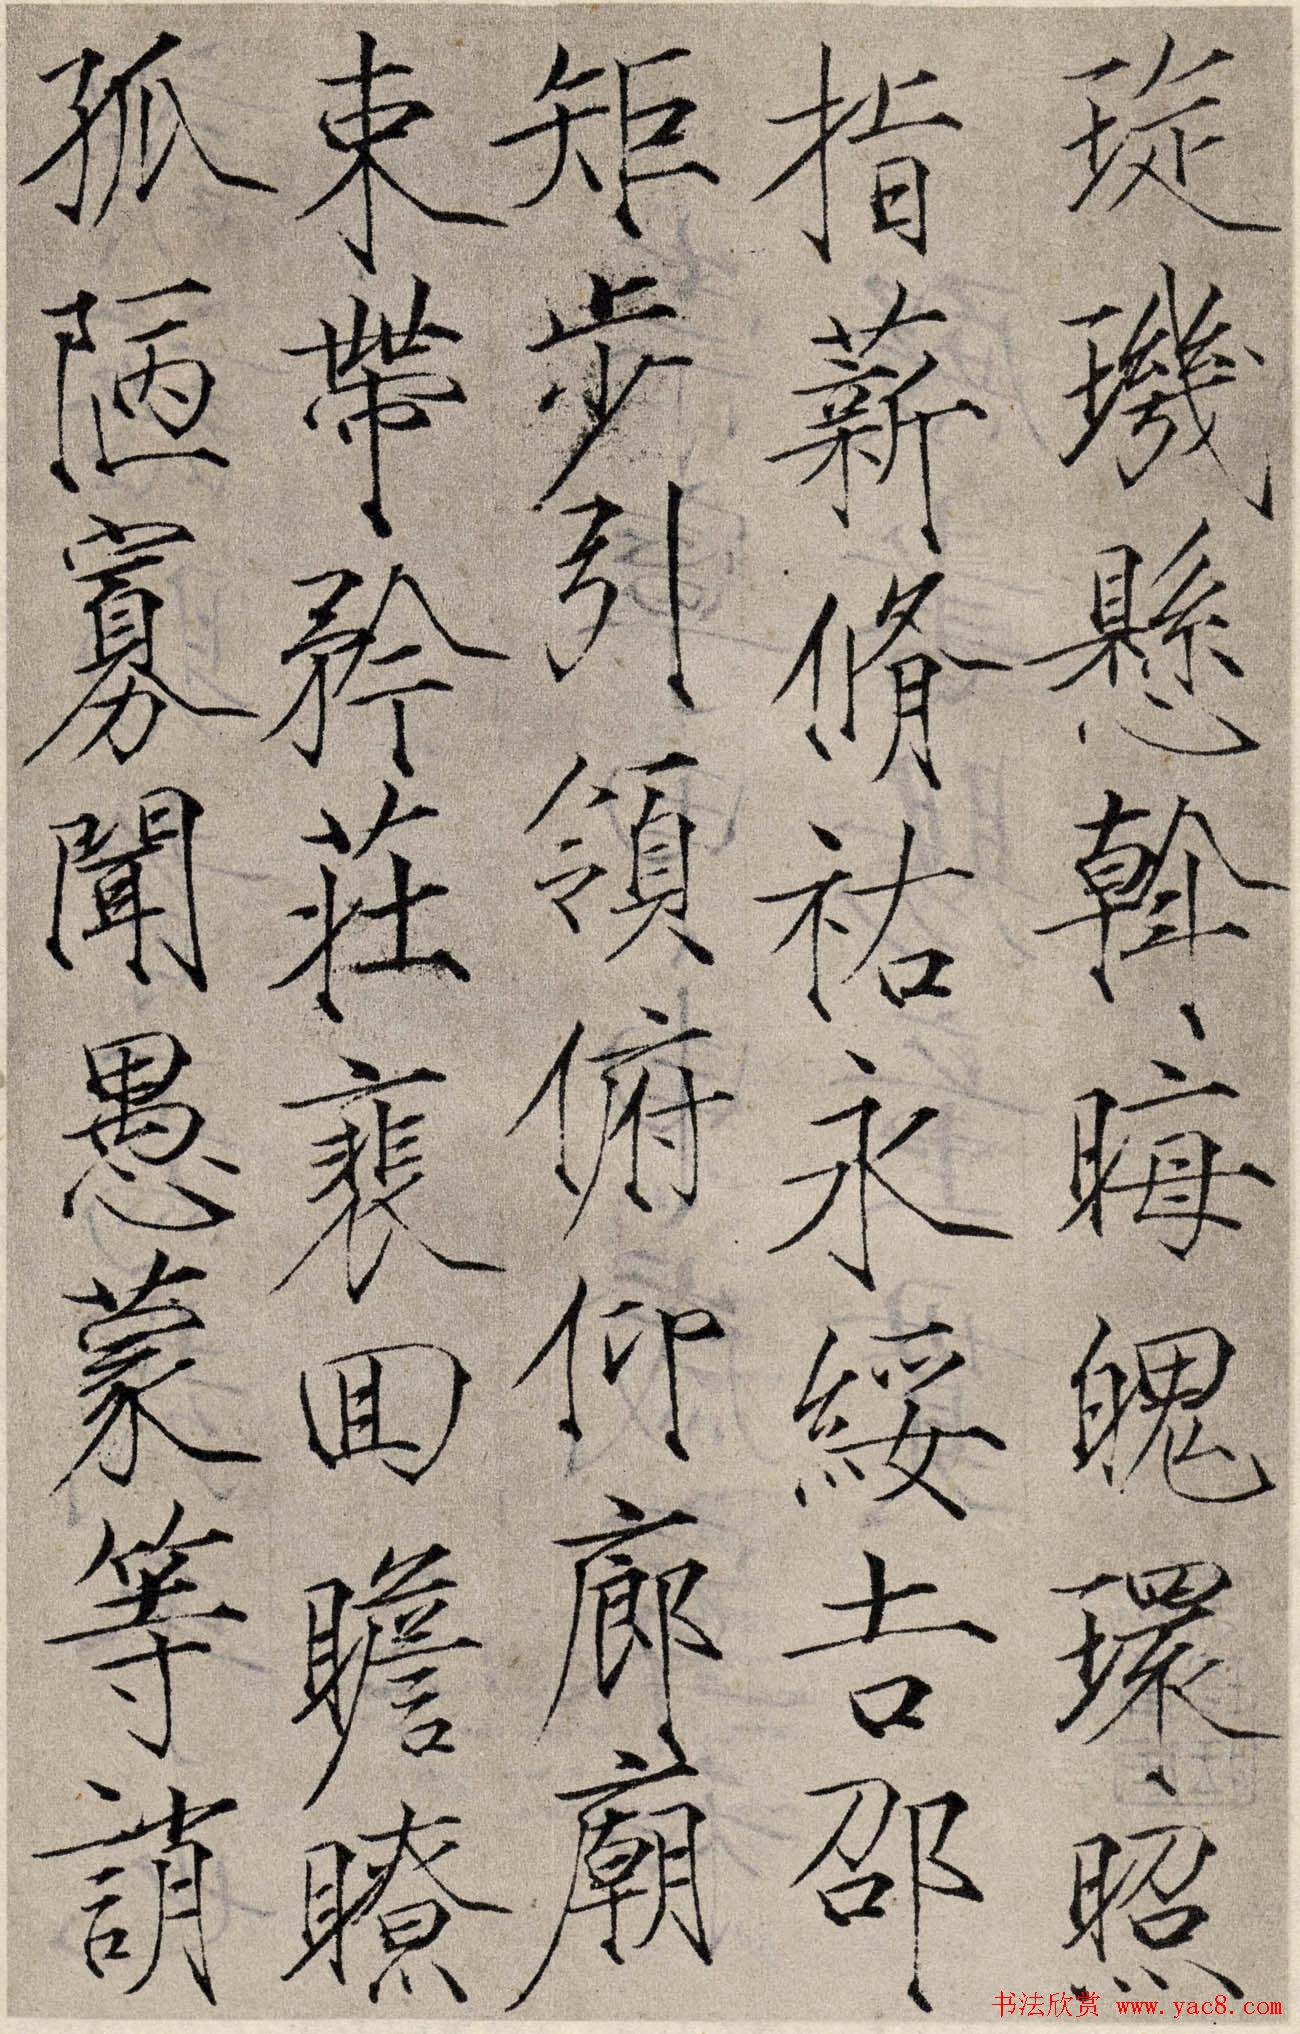 琁璣懸斡晦魄環照
指薪脩祜永綏吉邵
矩步引領俯仰廊廟
束帶矜莊裴回瞻瞭
孤陋寡聞愚蒙等誚
书法欣赏 www.yac8.com